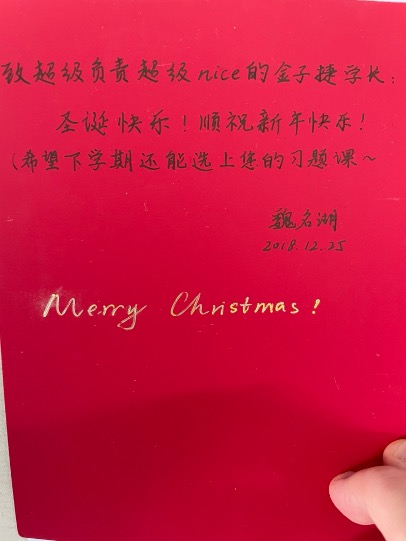 致超级负责超级nice的金子捷学长：
圣诞快乐！顺祝新年快乐！
（希望下学期还能选上您的习题课～
魏名湖
2018.12.25
Merry Christmas!